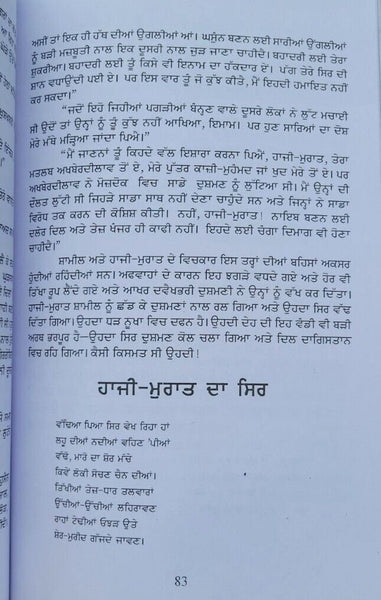 ਅਸੀਂ ਤਾਂ ਇਕ ਹੀ ਹੱਥ ਦੀਆਂ ਉਂਗਲੀਆਂ ਆਂ। ਘਸੁੰਨ ਬਣਨ ਲਈ ਸਾਰੀਆਂ ਉਂਗਲੀਆਂ
ਨੂੰ ਬੜੀ ਮਜ਼ਬੂਤੀ ਨਾਲ ਇਕ ਦੂਸਰੀ ਨਾਲ ਜੁੜ ਜਾਣਾ ਚਾਹੀਦੈ। ਬਹਾਦਰੀ ਲਈ ਤੇਰਾ
ਸ਼ੁਕਰੀਆ। ਬਹਾਦਰੀ ਲਈ ਤੂੰ ਕਿਸੇ ਵੀ ਇਨਾਮ ਦਾ ਹੱਕਦਾਰ ਏਂ। ਪੱਗ ਤੇਰੇ ਸਿਰ ਦੀ
ਸ਼ਾਨ ਵਧਾਉਂਦੀ ਪਈ ਏ। ਪਰ ਇਸ ਵਾਰ ਤੂੰ ਜੋ ਕੁੱਝ ਕੀਤੈ, ਮੈਂ ਇਹਦੀ ਹਮਾਇਤ ਨਹੀਂ
ਕਰ ਸਕਦਾ।”
“ਜਦੋਂ ਇਹੋ ਜਿਹੀਆਂ ਪਗੜੀਆਂ ਬੰਨ੍ਹਣ ਵਾਲੇ ਦੂਸਰੇ ਲੋਕਾਂ ਨੇ ਲੁੱਟ ਮਚਾਈ
ਸੀ ਉਦੋਂ ਤਾਂ ਉਨ੍ਹਾਂ ਨੂੰ ਤੂੰ ਕੁੱਝ ਨਹੀਂ ਆਖਿਆ, ਇਮਾਮ। ਪਰ ਹੁਣ ਸਾਰਿਆਂ ਦਾ ਦੋਸ਼
ਮੇਰੇ ਮੱਥੇ ਮੜ੍ਹਿਆ ਜਾਂਦਾ ਪਿਐ।”
“ਮੈਂ ਜਾਣਨਾਂ ਤੂੰ ਕਿਹਦੇ ਵੱਲ ਇਸ਼ਾਰਾ ਕਰਨਾ ਪਿਐਂ, ਹਾਜੀ-ਮੁਰਾਤ, ਤੇਰਾ
ਮਤਲਬ ਅਖਬੇਰਦੀਲਾਵ ਤੋਂ ਏ, ਮੇਰੇ ਪੁੱਤਰ ਕਾਜ਼ੀ-ਮੁਹੰਮਦ ਜਾਂ ਖ਼ੁਦ ਮੇਰੇ ਤੋਂ ਏ। ਪਰ
ਅਖਬੇਰਦੀਲਾਵ ਨੇ ਮੋਜ਼ਦੋਕ ਵਿਚ ਸਾਡੇ ਦੁਸ਼ਮਣ ਨੂੰ ਲੁੱਟਿਆ ਸੀ। ਮੈਂ ਉਨ੍ਹਾਂ ਦੀ
ਦੌਲਤ ਲੁੱਟੀ ਸੀ ਜਿਹੜੇ ਸਾਡਾ ਸਾਥ ਨਹੀਂ ਦੇਣਾ ਚਾਹੁੰਦੇ ਸਨ ਅਤੇ ਜਿਨ੍ਹਾਂ ਨੇ ਸਾਡਾ
ਵਿਰੋਧ ਤਕ ਕਰਨ ਦੀ ਕੋਸ਼ਿਸ਼ ਕੀਤੀ। ਨਹੀਂ, ਹਾਜੀ-ਮੁਰਾਤ! ਨਾਇਬ ਬਣਨ ਲਈ
ਦਲੇਰ ਦਿਲ ਅਤੇ ਤੇਜ਼ ਖੰਜਰ ਹੀ ਕਾਫੀ ਨਹੀਂ। ਇਹਦੇ ਲਈ ਚੰਗਾ ਦਿਮਾਗ ਵੀ ਹੋਣਾ
ਚਾਹੀਦੈ।”
ਸ਼ਾਮੀਲ ਅਤੇ ਹਾਜੀ-ਮੁਰਾਤ ਦੇ ਵਿਚਕਾਰ ਇਸ ਤਰ੍ਹਾਂ ਦੀਆਂ ਬਹਿਸਾਂ ਅਕਸਰ
ਹੁੰਦੀਆਂ ਰਹਿੰਦੀਆਂ ਸਨ। ਅਫਵਾਹਾਂ ਦੇ ਕਾਰਨ ਇਹ ਝਗੜੇ ਵਧਦੇ ਗਏ ਅਤੇ ਹੋਰ ਵੀ
ਤਿੱਖਾ ਰੂਪ ਲੈਂਦੇ ਗਏ ਅਤੇ ਆਖਰ ਦਵੈਖਭਰੀ ਦੁਸ਼ਮਣੀ ਨੇ ਉਨ੍ਹਾਂ ਨੂੰ ਵੱਖ ਕਰ ਦਿੱਤਾ।
ਹਾਜੀ-ਮੁਰਾਤ ਸ਼ਾਮੀਲ ਨੂੰ ਛੱਡ ਕੇ ਦੁਸ਼ਮਣਾਂ ਨਾਲ ਰਲ ਗਿਆ ਅਤੇ ਉਹਦਾ ਸਿਰ ਵੱਢ
ਦਿੱਤਾ ਗਿਆ। ਉਹਦਾ ਧੜ ਨੂਖਾ ਵਿਚ ਦਫਨ ਹੈ। ਉਹਦੀ ਦੇਹ ਦੀ ਇਹ ਵੰਡੀ ਵੀ ਬੜੀ
ਅਰਥ ਭਰਪੂਰ ਹੈ—ਉਹਦਾ ਸਿਰ ਦੁਸ਼ਮਣ ਕੋਲ ਚਲਾ ਗਿਆ ਅਤੇ ਦਿਲ ਦਾਗਿਸਤਾਨ
ਵਿਚ ਰਹਿ ਗਿਆ। ਕੈਸੀ ਕਿਸਮਤ ਸੀ ਉਹਦੀ!
ਹਾਜੀ-ਮੁਰਾਤ ਦਾ ਸਿਰ
ਵੱਢਿਆ ਪਿਆ ਸਿਰ ਵੇਖ ਰਿਹਾ ਹਾਂ
ਲਹੂ ਦੀਆਂ ਨਦੀਆਂ ਵਹਿਣ 'ਪੀਆਂ
ਵੱਢੋ, ਮਾਰੋ ਦਾ ਸ਼ੋਰ ਮੱਚੇ
ਕਿਵੇਂ ਲੋਕੀ ਸੋਚਣ ਚੈਨ ਦੀਆਂ।
ਤਿੱਖੀਆਂ ਤੇਜ਼-ਧਾਰ ਤਲਵਾਰਾਂ
ਉੱਚੀਆਂ-ਉੱਚੀਆਂ ਲਹਿਰਾਵਣ
ਰਾਹਾਂ ਟੇਢੀਆਂ ਓਝੜ ਉਤੇ
ਸ਼ੇਰ-ਮੁਰੀਦ ਗੱਜਦੇ ਜਾਵਣ।
83